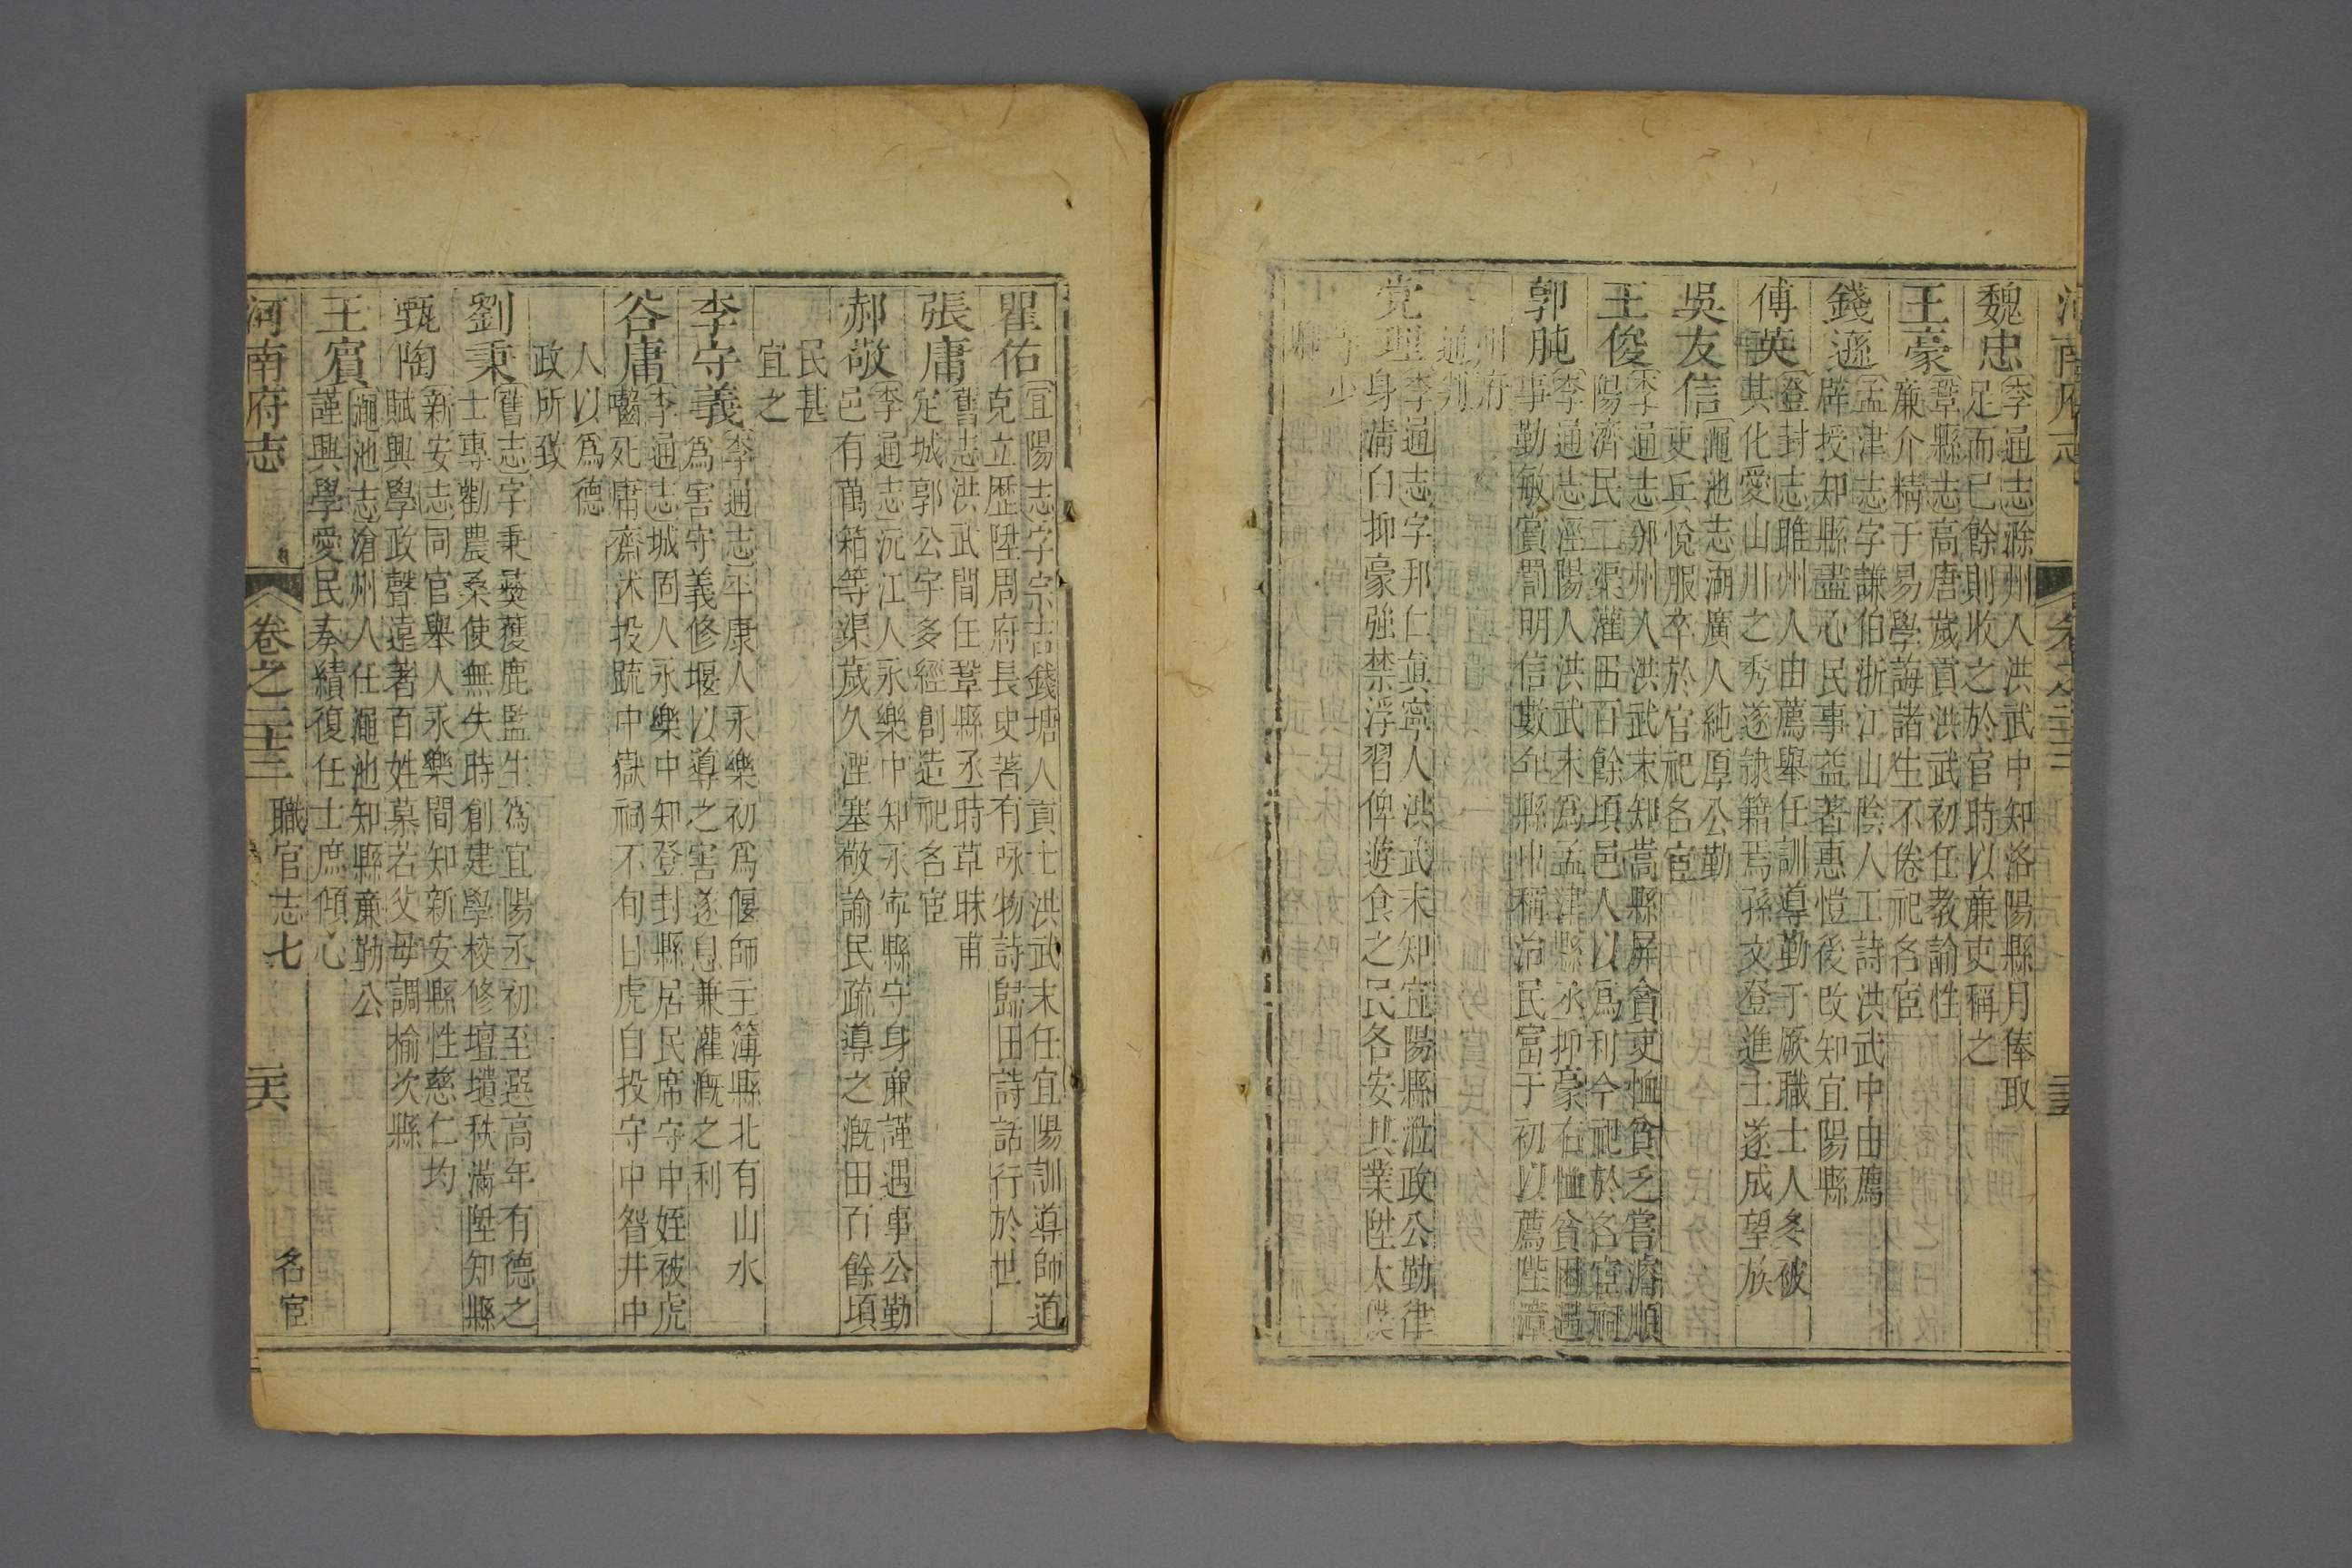 河南府志
卷之三十三
魏忠
李通志滁州人洪武中知洛陽縣月俸取
足而已餘則收之於官時以廉吏稱之
王豪
鞏縣志高唐歲貢洪武初任教諭性
廉介精于易學誨諸生不倦祀名宦
錢遜
孟津志字謙伯浙江山陰人工詩洪武中由薦
辟授知縣盡心民事益著惠愷後改知宜陽縣
傅英
登封志睢州人由薦舉任訓導勤于厥職士人多被
其化愛山川之秀遂隷籍焉孫文登進士遂成望族
吳友信
澠池志湖廣人純厚公勤
吏兵悅服卒於官祀名宦
王俊
李通志邠州人洪武末知嵩縣屏貪吏恤貧乏嘗濬順
陽濟民二渠灌田百餘頃邑人以爲利今祀於名宦祠
郭肫
李通志涇陽人洪武末爲孟津縣丞抑豪右恤貧困遇
事勤敏賞罰明信數年縣中稱治民富于初以薦陞漳
州府
通判
党理
李通志字邦仁眞寧人洪武末知宜陽縣涖政公勤律
身清白抑豪強禁浮習俾遊食之民各安其業陞太僕
寺少
卿
瞿佑
宜陽志字宗吉錢塘人貢士洪武末任宜陽訓導師道
克立歷陞周府長史著有咏物詩歸田詩話行於世
張庸
舊志洪武間任鞏縣丞時草昧甫
定城郭公宇多經創造祀名宦
郝敬
李通志沅江人永樂中知永寧縣守身廉謹遇事公勤
邑有萬箱等渠歲久湮塞敬諭民疏導之溉田百餘頃
民甚
宜之
李守義
李通志平康人永樂初爲偃師主簿縣北有山水
爲害守義修堰以導之害遂息兼灌溉之利
谷庸
李通志城固人永樂中知登封縣居民席守中姪被虎
囓死庸齋沐投䟽中嶽祠不旬日虎自投守中智井中
人以爲德
政所致
劉秉
舊志字秉彝獲鹿監生爲宜陽丞初至延高年有德之
士專勸農桑使無失時創建學校修壇壝秩滿陞知縣
甄陶
新安志同官舉人永樂間知新安縣性慈仁均
賦興學政聲遠著百姓慕若父母調榆次縣
王賓
澠池志滄州人任澠池知縣廉勤公
謹興學愛民奏績復任士庶傾心
河南府志
卷之三十三
職官志七
名宦